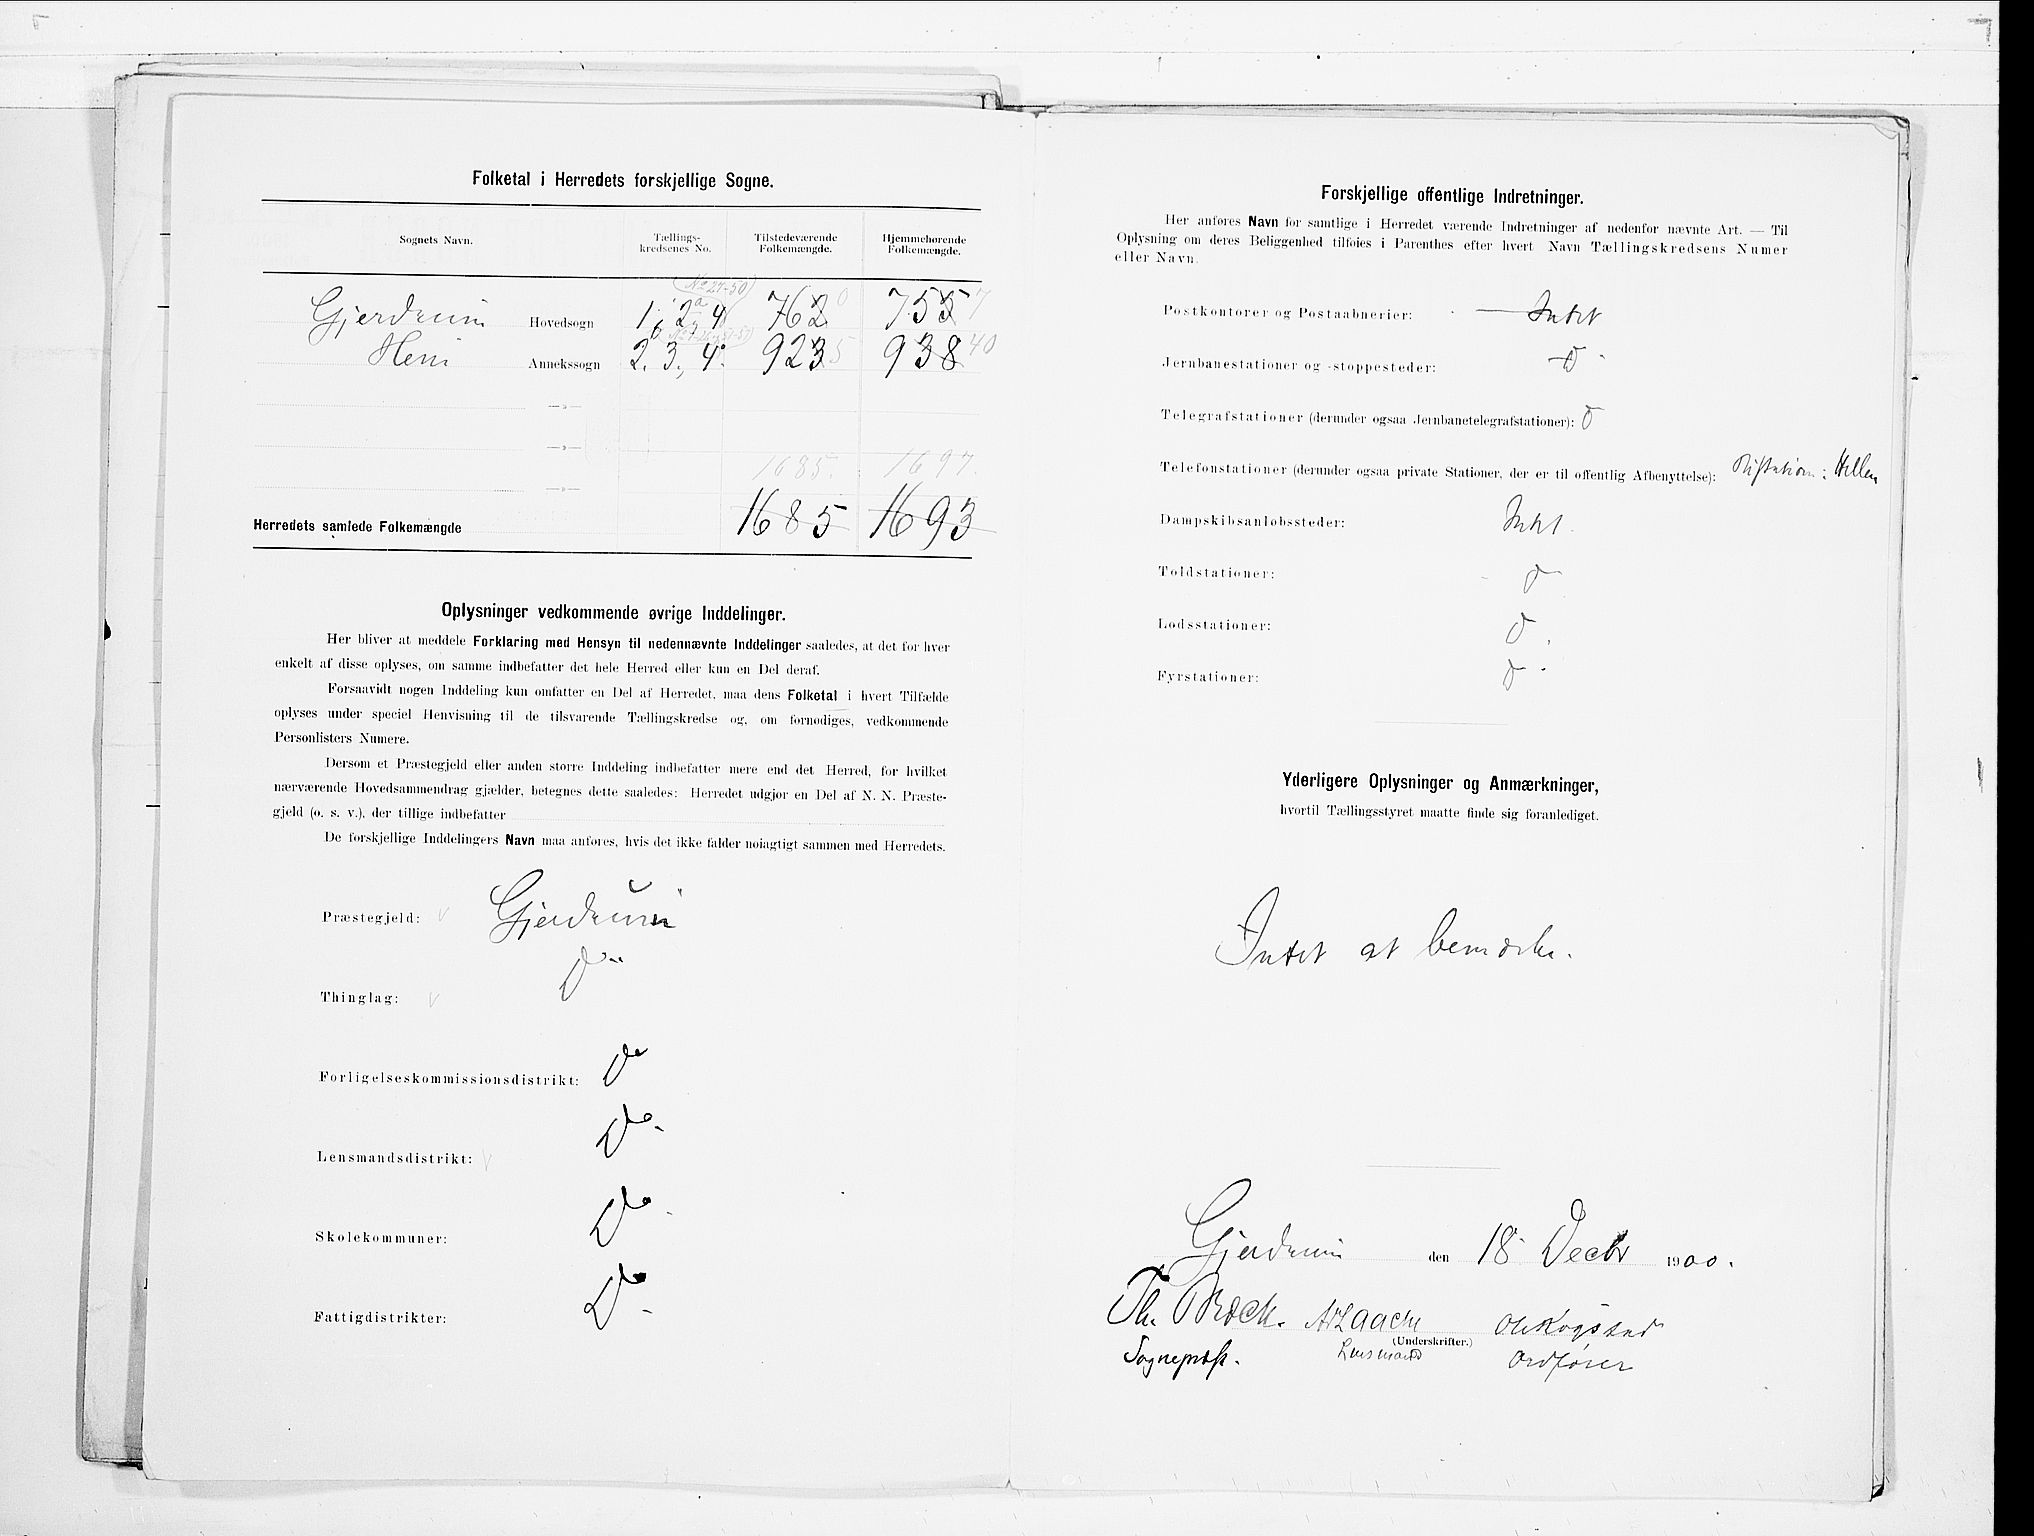 Folketal i Herredets forskjellige Sogne.
Sognets Navn. Tællings-kredsenes No. Tilstedeværende Folkemængde. Hjemmehørende Folkemængde.
(No 27-50)
Gjerdrum Hovedsogn 1, 2, 4 762 0 755 7
Heni Annekssogn 2, 3, 4. 923 5 938 40
—»—
—»—
1685. 1697.
—»—
Herredets samlede Folkemængde 1685 1693
Oplysninger vedkommende øvrige Inddelinger.
Her bliver at meddele Forklaring med Hensyn til nedennævnte Inddelinger saaledes, at det for hver
enkelt af disse oplyses, om samme indbefatter det hele Herred eller kun en Del deraf.
Forsaavidt nogen Inddeling kun omfatter en Del af Herredet, maa dens Folketal i hvert Tilfælde
oplyses under speciel Henvisning til de tilsvarende Tællingskredse og, om fornødiges, vedkommende
Personlisters Numere.
Dersom et Præstegjeld eller anden større Inddeling indbefatter mere end det Herred, for hvilket
nærværende Hovedsammendrag gjælder, betegnes dette saaledes: Herredet udgjør en Del af N. N. Præste-
gjeld (o. s. v.), der tillige indbefatter
De forskjellige Inddelingers Navn maa anføres, hvis det ikke falder nøiagtigt sammen med Herredets.
Præstegjeld: Gjerdrum
Thinglag: Do
Forligelseskommissionsdistrikt: Do
Lensmandsdistrikt: Do.
Skolekommuner: Do.
Fattigdistrikter: Do.
Forskjellige offentlige Indretninger.
Her anføres Navn for samtlige i Herredet værende Indretninger af nedenfor nævnte Art. — Til
Oplysning om deres Beliggenhed tilføies i Parenthes efter hvert Navn Tællingskredsens Numer
eller Navn.
Postkontorer og Postaabnerier: Intet
Jernbanestationer og -stoppesteder: Do
Telegrafstationer (derunder ogsaa Jernbanetelegrafstationer): Do
Telefonstationer (derunder ogsaa private Stationer, der er til offentlig Afbenyttelse):
Dampskibsanløbssteder: Intet.
Toldstationer: Do
Lodsstationer: Do.
Fyrstationer: Do
Yderligere Oplysninger og Anmærkninger,
hvortil Tællingsstyret maatte finde sig foranlediget.
Intet at bemærke.
Gjerdrum den 18 Decbr 1900.
Th. Brock. Laache
(Underskrifter.)
Sognepræst. Lensmand Ordfører